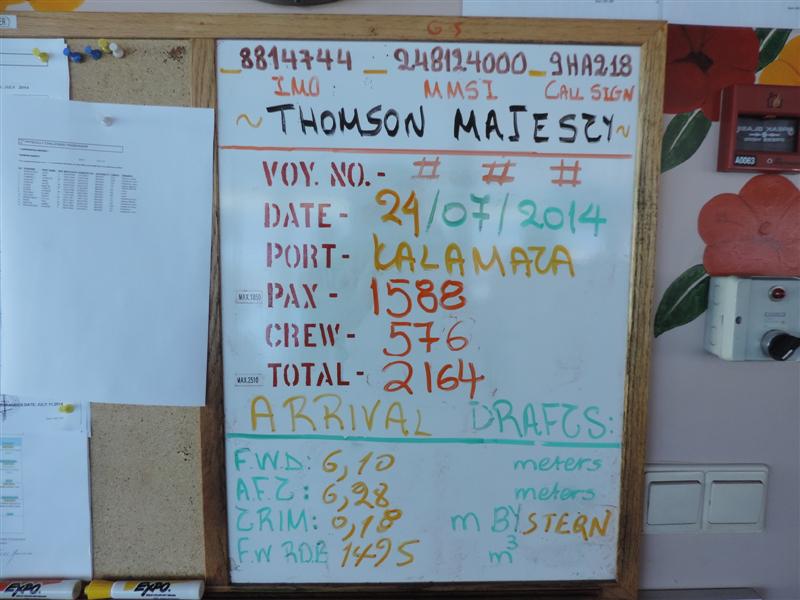 G5
8814744 248124000 9HA218
IMO MMSI CALL SIGN
~THOMSON MAJESTY~
VOY. NO.- # # #
DATE- 24/07/2014
PORT- KALAMATA
MAX.1850 PAX- 1588
CREW- 576
MAX.2510 TOTAL- 2164
ARRIVAL DRAFTS:
F.W.D: 6,10 meters
A.F.T: 6,28 meters
TRIM: 0,18 m BY STERN
F.W R.O.B 1495 m³
A0063
EXPO.
EXPO.